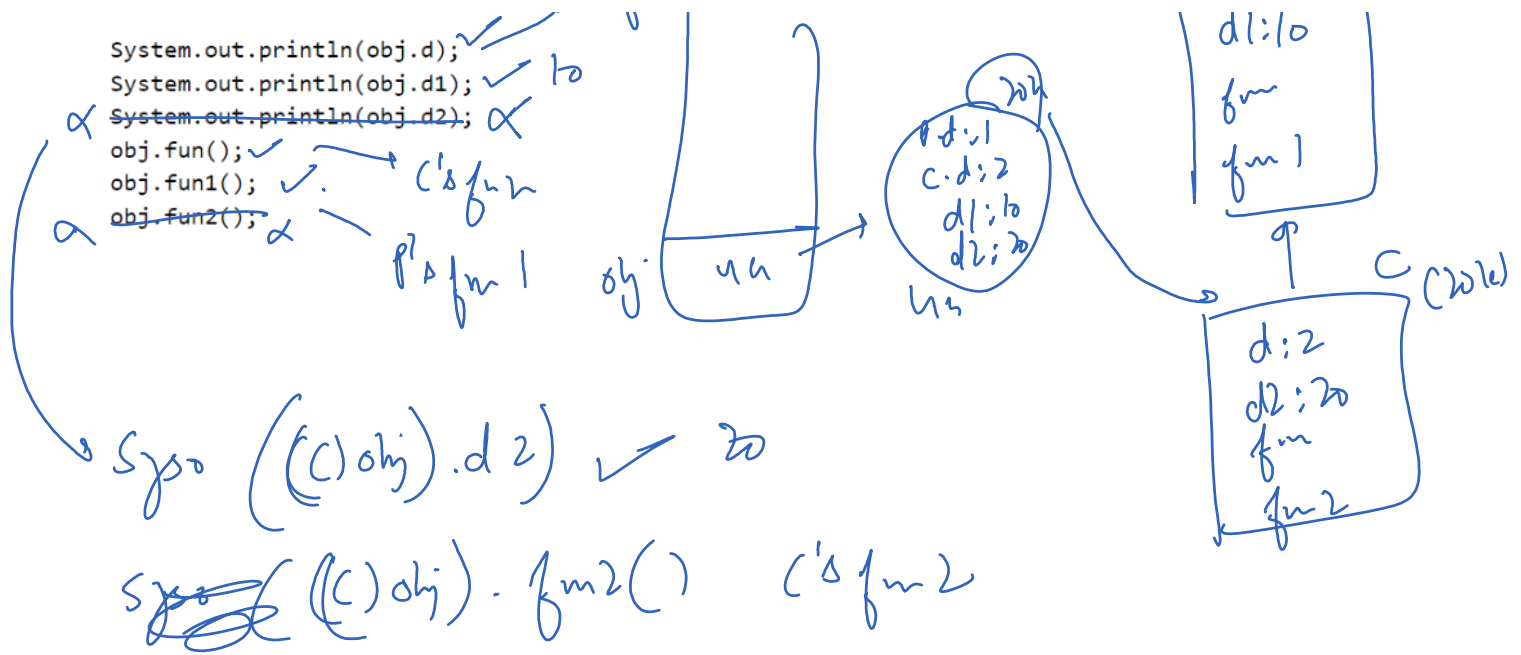 System.out.println(obj.d);
System.out.println(obj.d1); 10
System.out.println(obj.d2);
obj.fun();
obj.fun1();
obj.fun2();
C's fun
P's fun1
obj
4k
20k
P.d:1
C.d:2
d1:10
d2:20
4k
d1:10
fun
fun1
C
(20k)
d:2
d2:20
fun
fun2
Syso (((C)obj).d2) 20
((C)obj).fun2() C's fun2